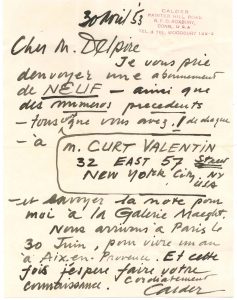 30 Avril 53
CALDER
PAINTER HILL ROAD
R.F.D. ROXBURY
CONN. U.S.A.
Cher M. Delpire
Je vous prie
d'envoyer une abonnement
de NEUF – ainsi que
des numeros precedents
– tous que vous avez, 1 de chaque
– à
M. CURT VALENTIN
32 EAST 57 Street
NEW YORK City, NY
USA
– et envoyer la note pour
moi à la Galerie Maeght.
Nous arrivons à Paris le
30 Juin, pour vivre un an
à Aix-en-Provence. Et cette
fois j'espere faire votre
connaissance. Cordialement
Calder